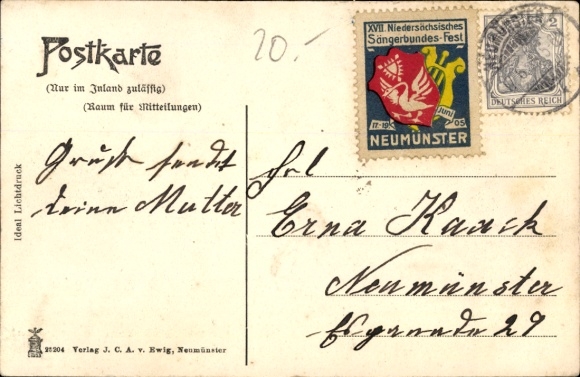 Postkarte
(Nur im Inland zulässig)
(Raum für Mitteilungen)
20.-
XVII. Niedersächsisches
Sängerbundes-Fest
17.-19. Juni 05
NEUMÜNSTER
2
DEUTSCHES REICH
Gruß sendet
deine Mutter
Frl
Erna Kaack
Neumünster
29
Ideal Lichtdruck
25204 Verlag J. C. A. v. Ewig, Neumünster